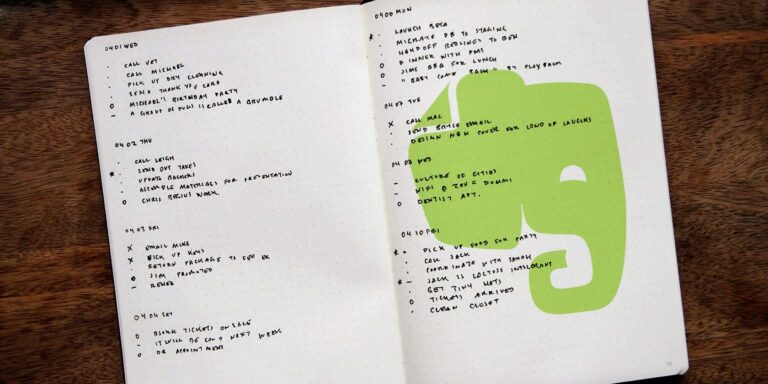 04 01 WED
· CALL VET
· CALL MICHAEL
· PICK UP DRY CLEANING
· SEND THANK YOU CARD
O MICHAEL'S BIRTHDAY PARTY
– A GROUP OF PUGS IS CALLED A GRUMBLE
04 02 THU
· CALL LEIGH
* · SEND OUT TAXES
· UPDATE
· ASSEMBLE MATERIALS FOR PRESENTATION
O CHRIS BEGINS WORK.
04 03 FRI
X EMAIL MIKE
X PICK UP KEYS
· RETURN PACKAGE TO FED EX
O JIM PROMOTED
–
04 04 SAT
O TICKETS ON SALE
– IT WILL BE COLD NEXT WEEK
O DR APPOINTMENT
04 06 MON
* · LAUNCH BETA
· MIGRATE DB TO STAGING
· HANDOFF REDLINES TO BEN
O DINNER WITH PMS
O JIMS BBQ FOR LUNCH
– "BABY COME BACK" BY PLAYBACK
04 07 TUE
X CALL MAC
· SEND EMAIL
· DESIGN NEW COVER FOR LAND OF LAUGHS
04 08 WED
– CULTURE OF CITIES
– WIFI @
O DENTIST APT.
04 10 FRI
* · PICK UP FOOD FOR PARTY
· CALL JACK
· COORDINATE WITH SARAH
* – JACK IS LACTOSE INTOLERANT
· GET TINY HATS
O TICKETS ARRIVED
· CLEAN CLOSET